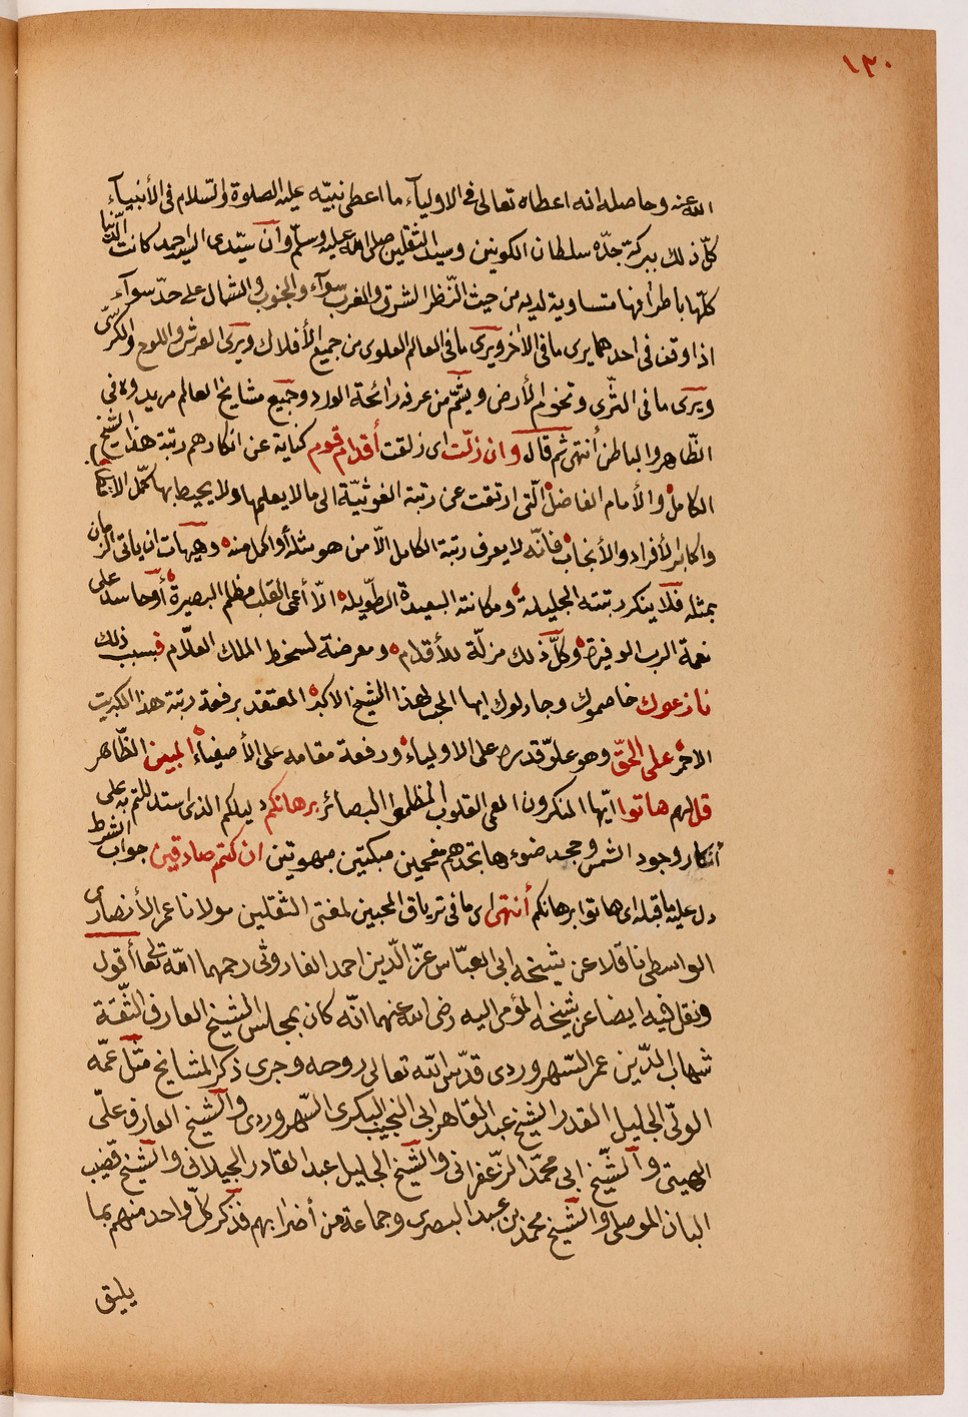 ١٣٠
الله عنه وحاصله انه اعطاه تعالى في الاوليآء ما اعطى نبيّه عليه الصلوة والسّلام في الأنبيآء
كلّ ذلك ببركة جدّه سلطان الكونين وسيد الثقلين صلى الله عليه وسلّم وأن سيّدى السيد احمد كانت الدّنيا
كلّها باطرافها متساوية لديه من حيث النّظر الشرق والغرب سوآء والجنوب والشمال على حدّ سوآء
اذا وقف في احدهما يرى ما في الآخر ويرى ما في العالم العلوى من جميع الأفلاك ويرى العرش واللوح والكرسّى
ويرى ما في الثّرى وتخوم الأرض ويشمّ من عرفه رائحة الولاد وجميع مشايخ العالم مريدوه في
الظّاهر والباطن أنتهى ثم قال وان زلّت اى زلقت أقدام قوم كناية عن انكارهم رتبة هذا الشيخ
الكامل والأمام الفاضل الّتى ارتقت عن رتبة الغوثيّة الى ما لا يعلمها ولا يحيط بها كمّل
واكابر الأفراد والأنجاب فأنّه لا يعرف رتبة الكامل الّا من هو مثله أو اكمل منه وهيهات ان ياتى الزمان
بمثله فلا ينكر رتبته الجليلة ومكانته البعيدة الطّويلة الّا أعمى القلب مظلم البصيرة أو حاسد على
نعمة الرب الوفيرة وكلّ ذلك مزلّة للأقدام ومعرضة لسخط الملك العلّام فبسبب ذلك
نازعوك خاصموك وجادلوك ايها المحب لهذا الشيخ الاكبر المعتقد برفعة رتبة هذا الكبريت
الاحمر على الحقّ وهو علوّ قدره على الاولياء ورفعة مقامه على الأصفياء المبين الظّاهر
قل لهم هاتوا ايّها المنكرون العمى القلوب المظلموا البصائر برهانكم دليلكم الذى استدللتم به على
انكار وجود الشمس وجحد ضوءها تجدهم مفحمين مبكتين مبهوتين ان كنتم صادقين جواب الشرط
دل عليه ما قبله اى هاتوا برهانكم أنتهى اى ما في ترياق المحبين لمفتى الثقلين مولانا عمر الأنصارى
الواسطى ناقلا عن شيخه ابى العبّاس عزّ الدّين احمد الفاروثى رحمهما الله تعالى أقول
ونقل فيه ايضا عن شيخه المؤمى اليه رضى الله عنهما انّه كان بمجلس الشيخ العارف الثّقة
شهاب الدّين عمر السّهروردى قدّس الله تعالى روحه وجرى ذكر المشايخ مثل عمّه
الولّى الجليل القدر الشيخ عبد القاهر ابى النجيب البكرى السّهروردى والشيخ العارف علّى
الهيتى والشّيخ ابى محمّد الزّعفرانى والشّيخ الجليل عبد القادر الجيلانى والشّيخ قضيب
البان الموصلى والشّيخ محمّد بن عبد البصرى وجماعة من أضرابهم فذكر كلّ واحد منهم بما
يليق